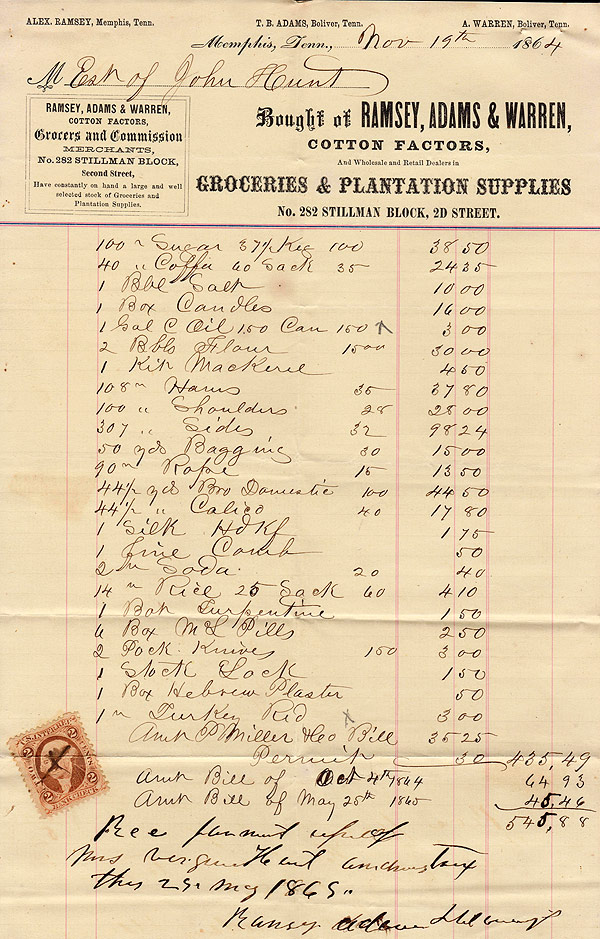 ALEX. RAMSEY, Memphis, Tenn. T. B. ADAMS, Boliver, Tenn. A. WARREN, Boliver, Tenn.
Memphis, Tenn., Nov 19th 1864
M Est of John Hunt
RAMSEY, ADAMS & WARREN,
COTTON FACTORS,
Grocers and Commission
MERCHANTS,
No. 282 STILLMAN BLOCK,
Second Street,
Have constantly on hand a large and well
selected stock of Groceries and
Plantation Supplies.
Bought of RAMSEY, ADAMS & WARREN,
COTTON FACTORS,
And Wholesale and Retail Dealers in
GROCERIES & PLANTATION SUPPLIES
No. 282 STILLMAN BLOCK, 2D STREET.
100 " Sugar 37½ Keg 100 38 50
40 " Coffee 60 Sack 35 24 35
1 Bbl Salt 10 00
1 Box Candles 16 00
1 Gal C Oil 1.50 Can 150 3 00
2 Bbls Flour 1500 30 00
1 Kit Mackerel 4 50
108 " Hams 35 37 80
100 " Shoulders 28 28 00
307 " Sides 32 98 24
50 yds Bagging 30 15 00
90 " Rope 15 13 50
44½ yds Bro Domestic 100 44 50
44½ " Calico 40 17 80
1 Silk Hdkf 1 75
1 Fine Comb 50
2 " Soda 20 40
14 " Rice 25 Sack 60 4 10
1 Bot Turpentine 1 50
6 Box McL Pills 2 50
2 Pock. Knives 150 3 00
1 Stock Lock 1 50
1 Box Hebrew Plaster 50
1 " Turkey Rid 3 00
Amt P Miller & Co Bill 35 25
Permit 30 435,49
Amt Bill of Oct 4th 1864 64 93
Amt Bill of May 25th 1865 45,46
545,88
Rec payment
Mrs Hunt
this 29 May 1865
Ramsey Adams
U.S. INTER. REV.
2 2
2 2